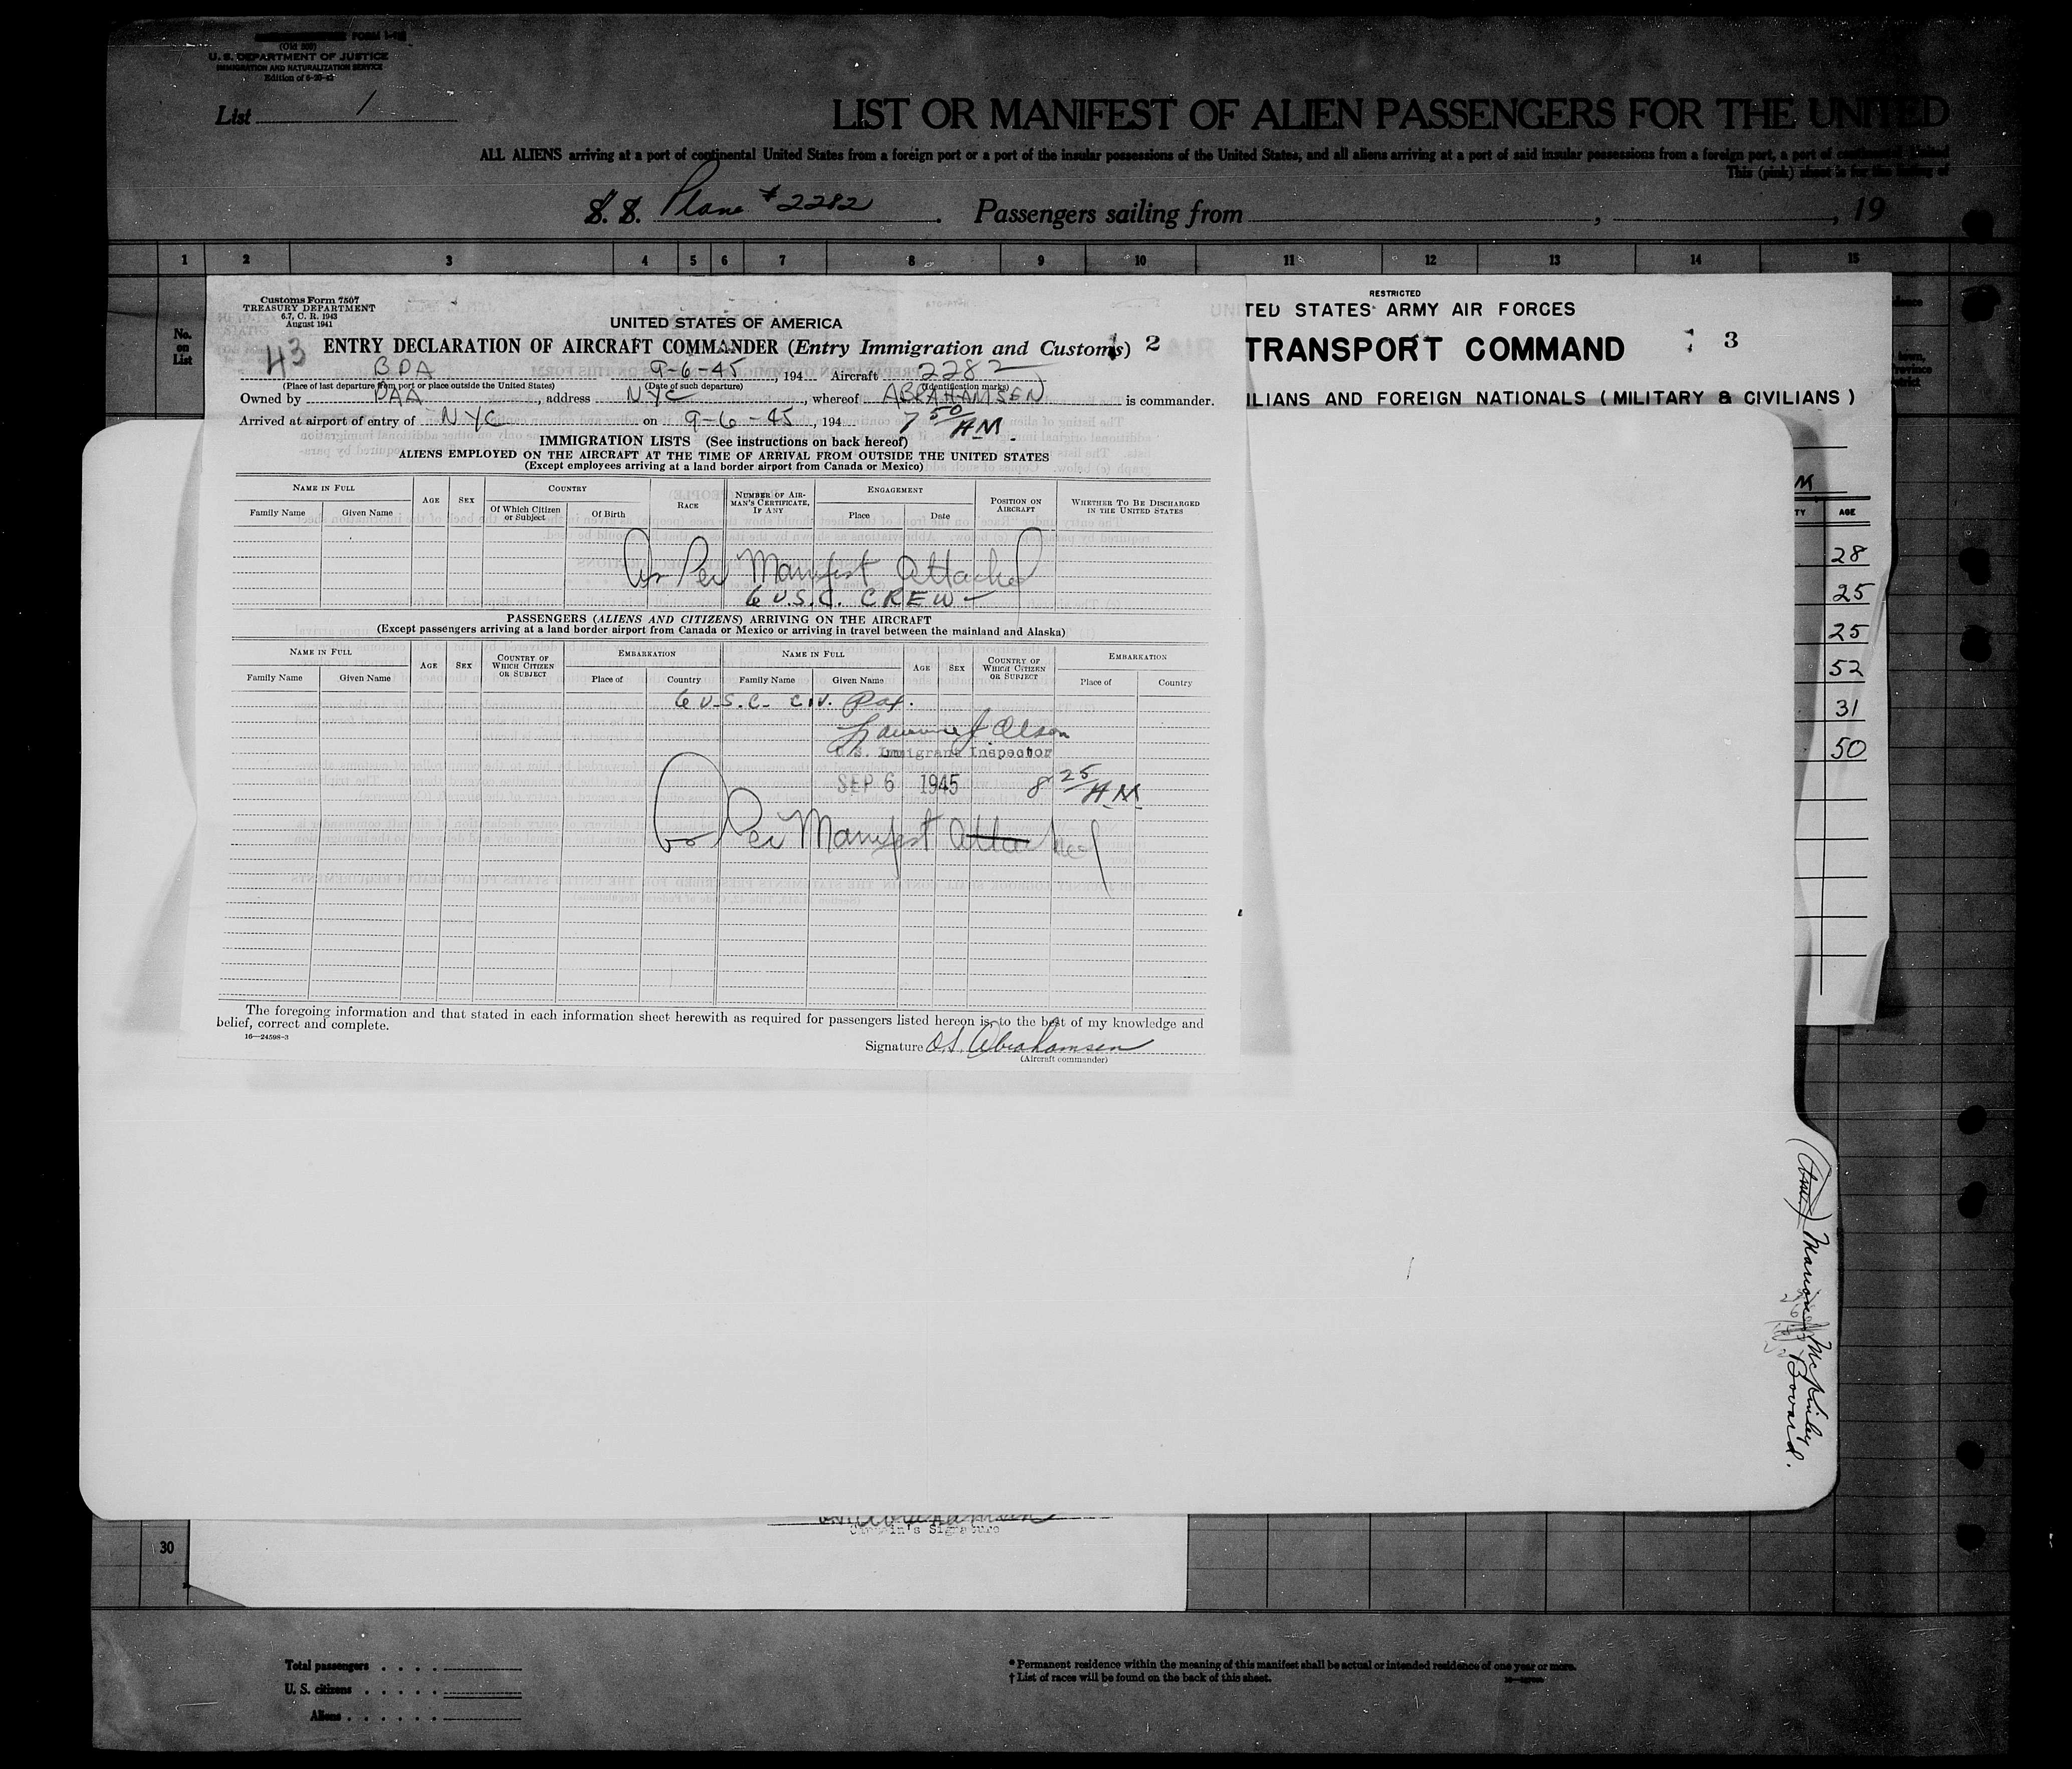 FORM I-415
(Old 500)
U. S. DEPARTMENT OF JUSTICE
IMMIGRATION AND NATURALIZATION SERVICE
List 1
LIST OR MANIFEST OF ALIEN PASSENGERS FOR THE UNITED
ALL ALIENS arriving at a port of continental United States from a foreign port or a port of the insular possessions of the United States, and all aliens arriving at a port of said insular possessions from a foreign port, a port of continental United
This (pink) sheet is for the listing of
S. S. Plane #2282. Passengers sailing from , , 19
1 2 3 4 5 6 7 8 9 10 11 12 13 14 15
No. on List
Customs Form 7507
TREASURY DEPARTMENT
6.7, C. R. 1943
August 1941
43
UNITED STATES OF AMERICA
ENTRY DECLARATION OF AIRCRAFT COMMANDER (Entry Immigration and Customs) 2
BDA 9-6-45, 194 Aircraft 2282
(Place of last departure from port or place outside the United States) (Date of such departure) (Identification marks)
Owned by PAA, address NYC, whereof ABRAHAMSEN is commander.
Arrived at airport of entry of NYC on 9-6-45, 194 7 50 AM
IMMIGRATION LISTS (See instructions on back hereof)
ALIENS EMPLOYED ON THE AIRCRAFT AT THE TIME OF ARRIVAL FROM OUTSIDE THE UNITED STATES
(Except employees arriving at a land border airport from Canada or Mexico)
NAME IN FULL AGE SEX COUNTRY RACE NUMBER OF AIRMAN'S CERTIFICATE, IF ANY ENGAGEMENT POSITION ON AIRCRAFT WHETHER TO BE DISCHARGED IN THE UNITED STATES
Family Name Given Name Of Which Citizen or Subject Of Birth Place Date
As Per Manifest Attached
6 U.S.C. CREW
PASSENGERS (ALIENS AND CITIZENS) ARRIVING ON THE AIRCRAFT
(Except passengers arriving at a land border airport from Canada or Mexico or arriving in travel between the mainland and Alaska)
NAME IN FULL AGE SEX COUNTRY OF WHICH CITIZEN OR SUBJECT EMBARKATION NAME IN FULL AGE SEX COUNTRY OF WHICH CITIZEN OR SUBJECT EMBARKATION
Family Name Given Name Place of Country Family Name Given Name Place of Country
6 U.S.C. CIV. Pax.
Lawrence J Olson
U.S. Immigrant Inspector
SEP 6 1945 8 25 AM
As Per Manifest Attached
The foregoing information and that stated in each information sheet herewith as required for passengers listed hereon is, to the best of my knowledge and
belief, correct and complete.
16—24598-3
Signature O.S. Abrahamsen
(Aircraft commander)
RESTRICTED
TED STATES ARMY AIR FORCES
TRANSPORT COMMAND 3
ILIANS AND FOREIGN NATIONALS (MILITARY & CIVILIANS)
M
TY AGE
28
25
25
52
31
50
McKinley
Bovard.
Captain's Signature
30
Total passengers
U. S. citizens
Aliens
* Permanent residence within the meaning of this manifest shall be actual or intended residence of one year or more.
† List of races will be found on the back of this sheet.